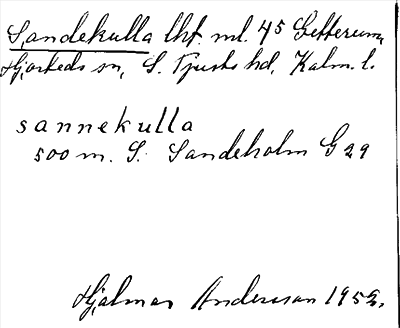 Sandekulla lht. ml. 45 Getterum,
Hjorteds sn, S. Tjusts hd, Kalm. l.
sannekulla
500 m. S. Sandeholm G 29
Hjalmar Andersson 1959.